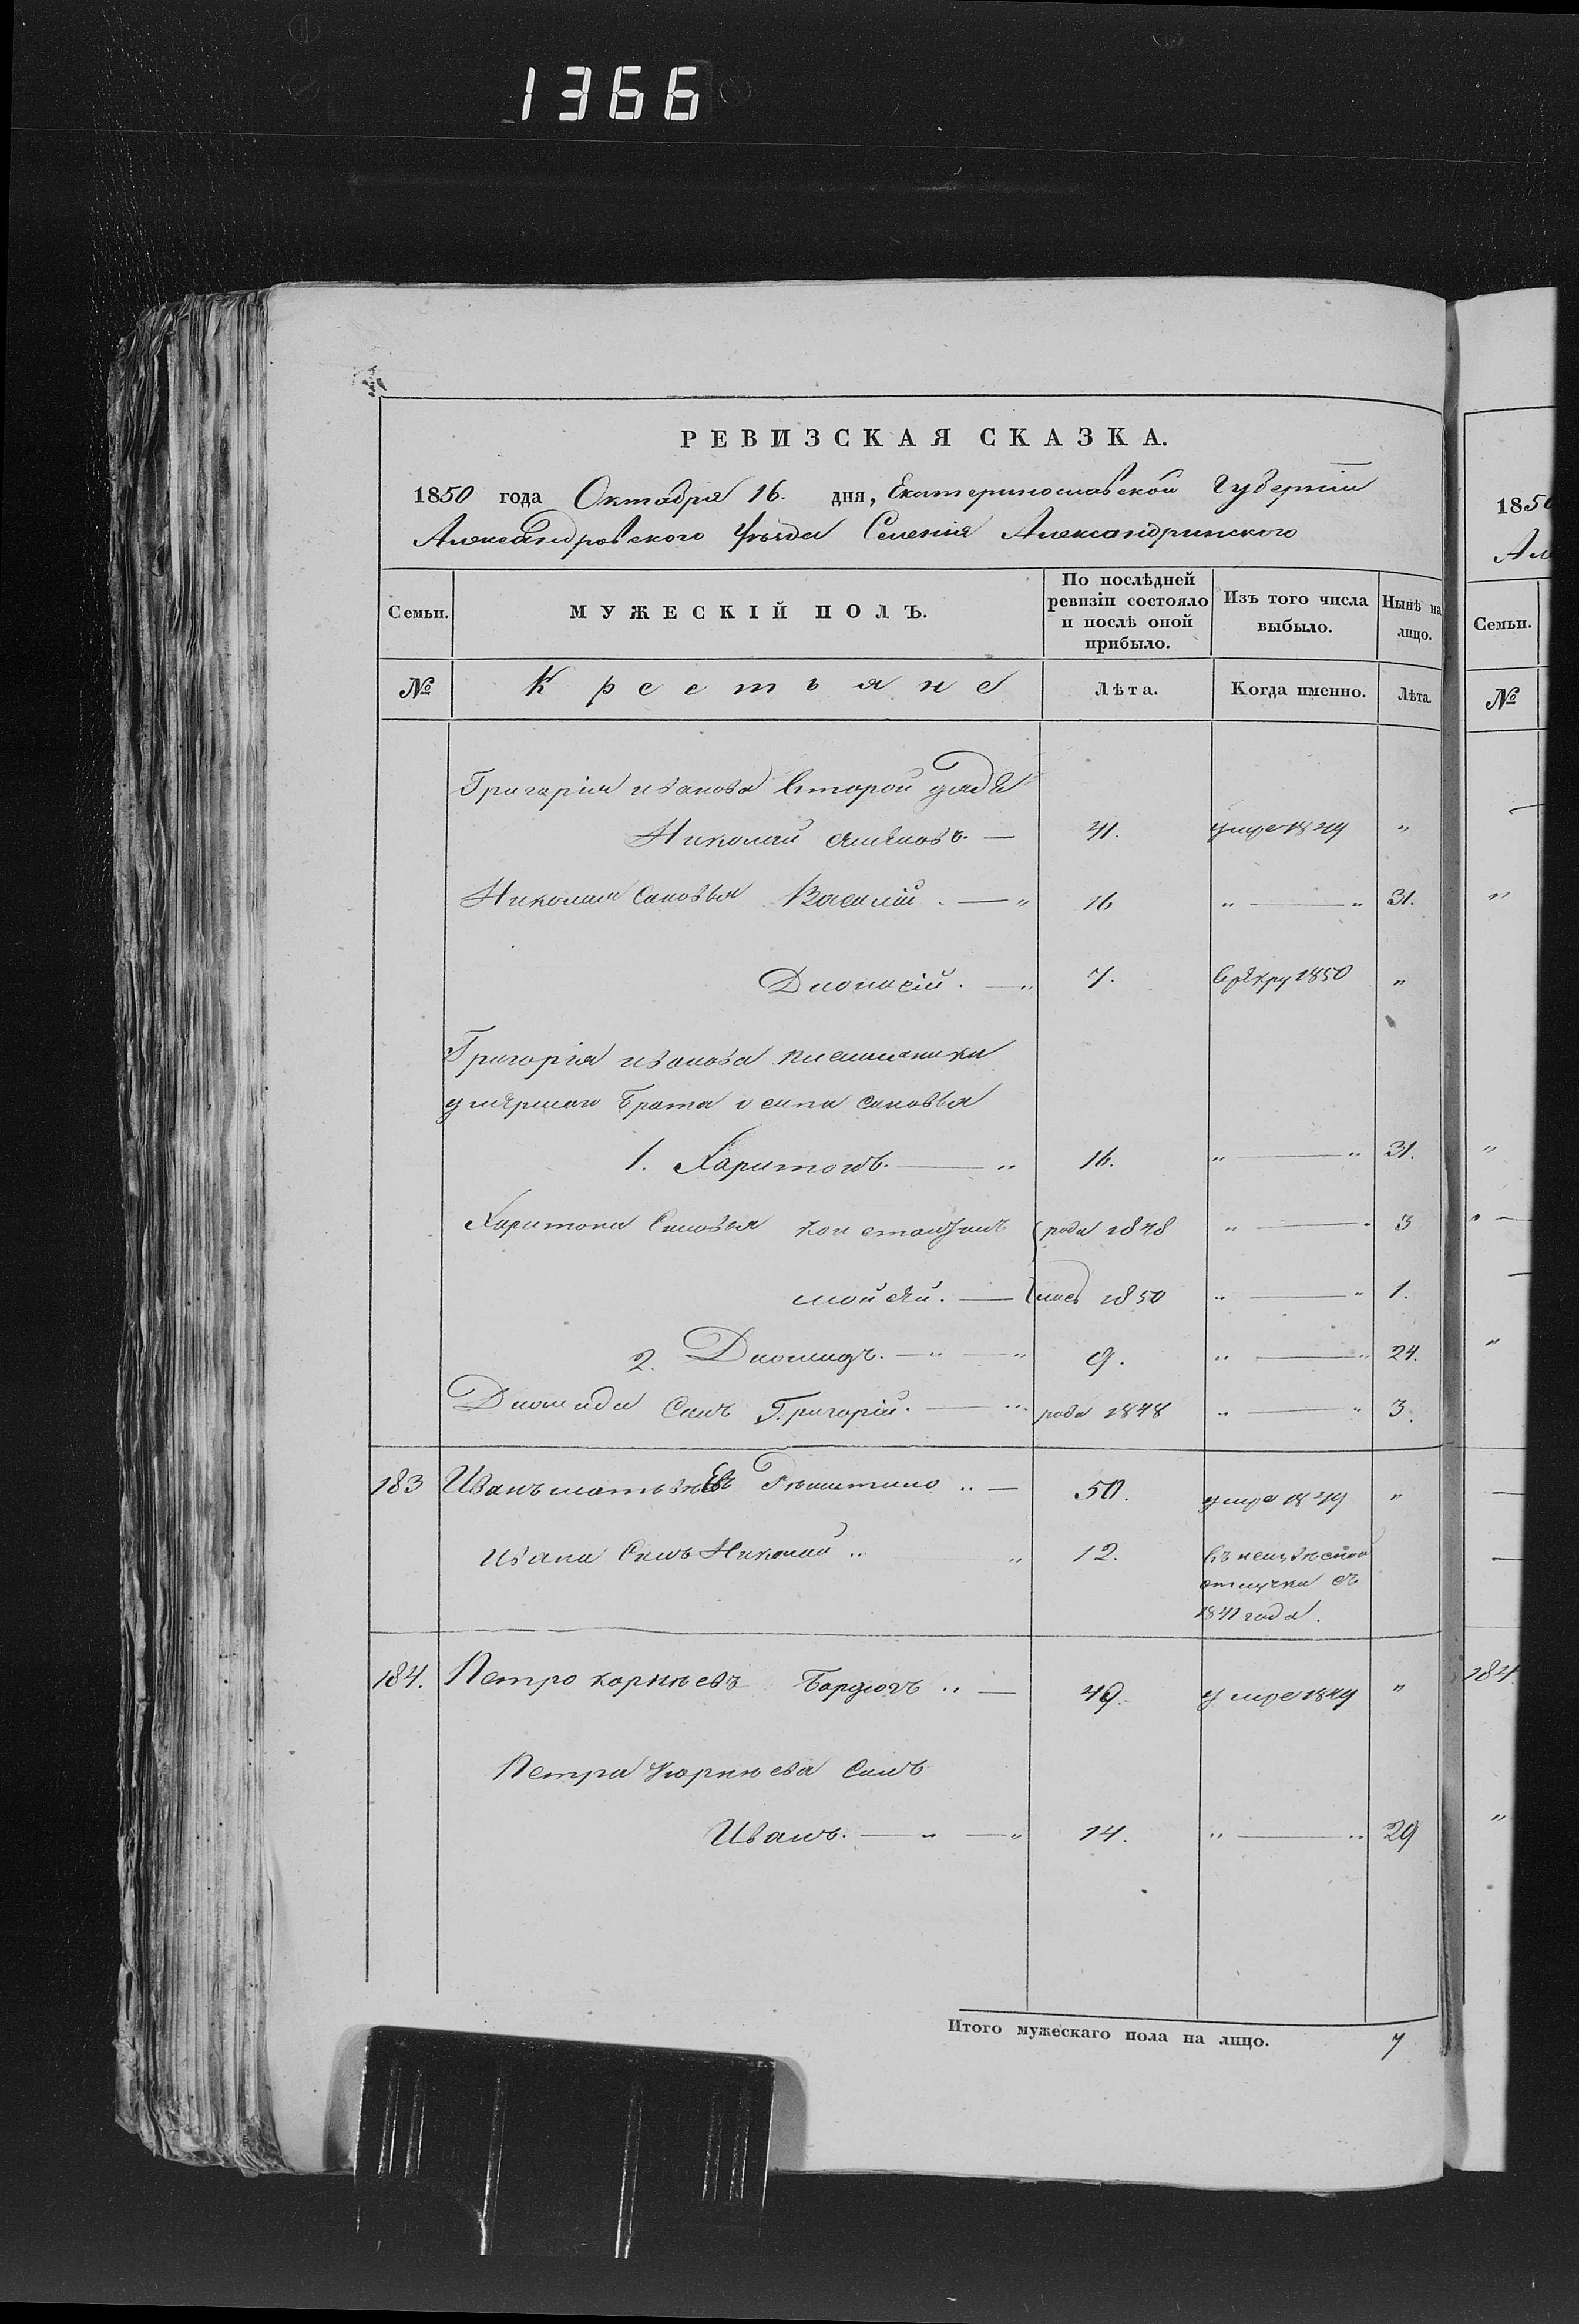 1366
РЕВИЗСКАЯ СКАЗКА.
1850 года Октября 16. дня, Екатеринославской Губернiи
Александровского Уѣзда Селенiя Александринского
Семьи. МУЖЕСКIЙ ПОЛЪ. По послѣдней ревизiи состояло и послѣ оной прибыло. Изъ того числа выбыло. Нынѣ на лицо.
№ Крестьяне Лѣта. Когда именно. Лѣта.
Григорiя иванова второй дядя
Николай — 41. умре 1849 "
Николая Сыновья Василiй. — " 16 " — " 31.
Дионисiй. — " 7. в рекру 1850 "
Григорiя иванова племянники
умершаго брата осипа сыновья
1. Харитонъ. — " 16. " — " 31.
Харитона Сыновья константинъ рода 1848 " — " 3
мойсей. — лись 1850 " — " 1.
2. Диомидъ. — " — " 9. " — " 24.
Диомида Сынъ Григорiй. — " рода 1848 " — " 3.
183 Иванъ матвѣевъ " — 50. умре 1849 "
Ивана Сынъ Николай " " 12. въ неизвѣсной
отлучки съ
1841 года.
184. Петро корнѣевъ Бардюгъ " — 49. умре 1849 "
Петра Корнѣева Сынъ
Иванъ. — " — " 14. " — " 29
Итого мужескаго пола на лицо. 7
1850
Але
Семьи.
№
184.